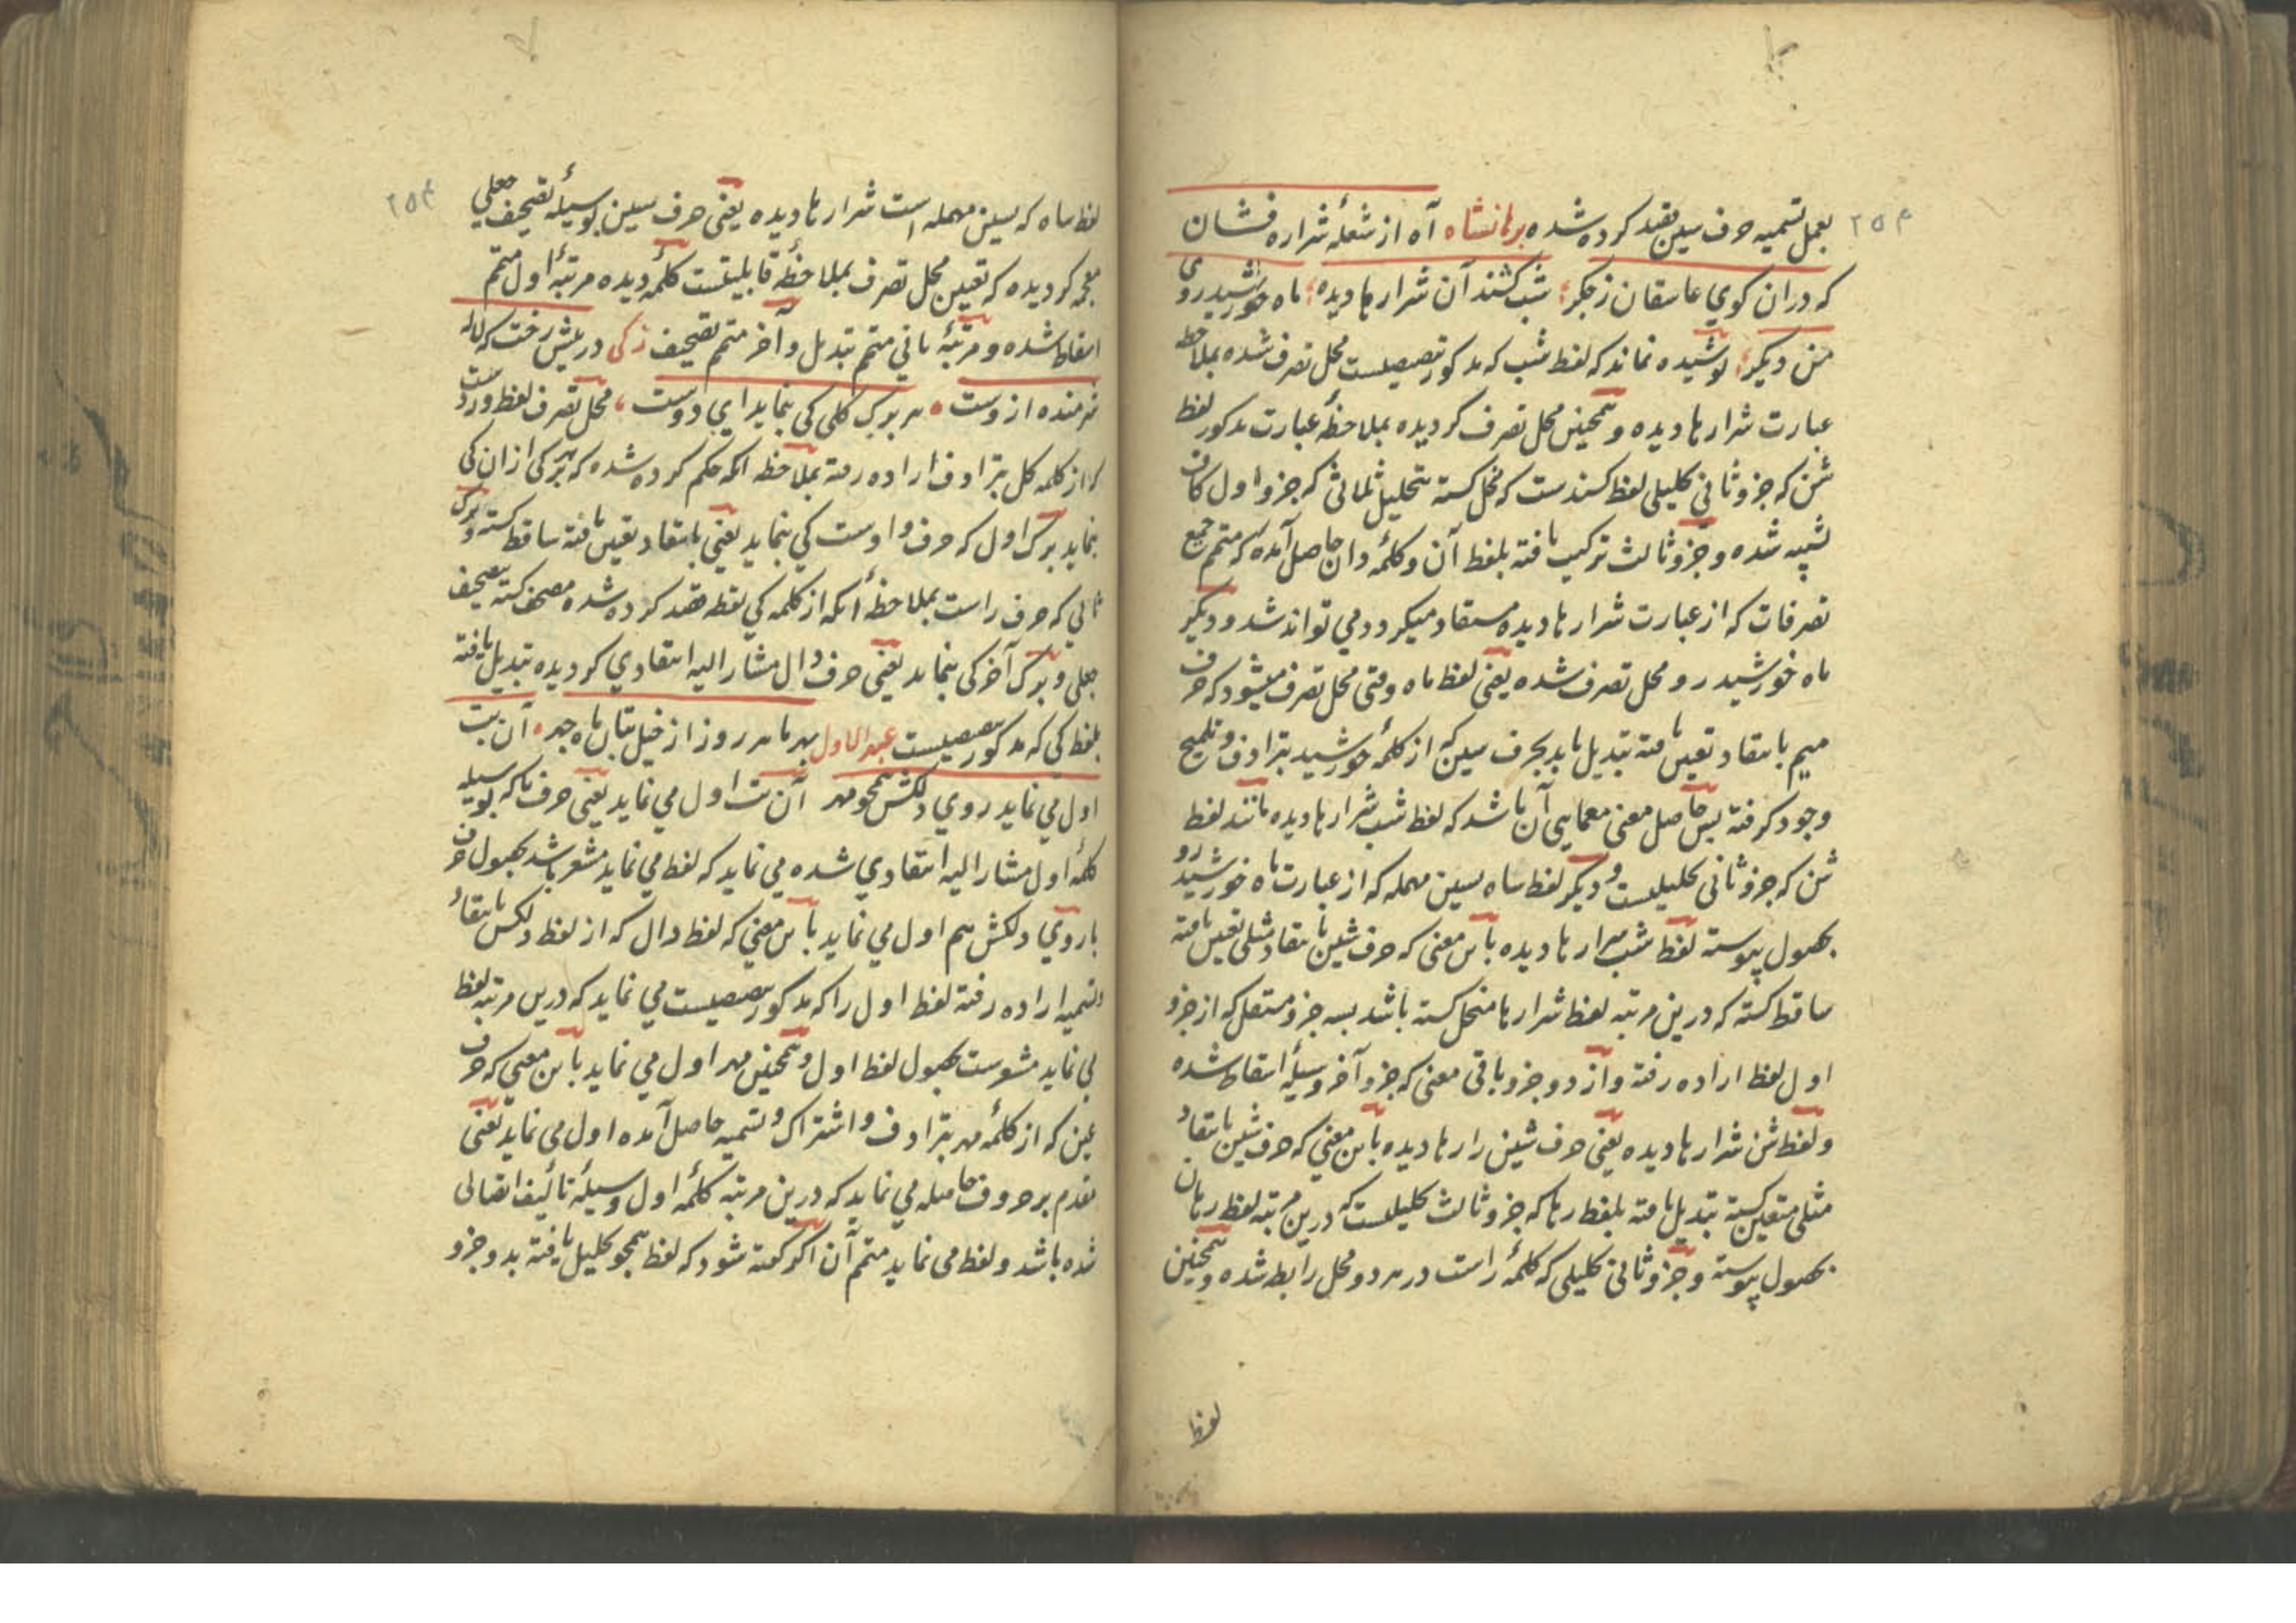 بعمل تسمیه حرف سین بقید کرده شده برهانشاه آه از شعلهٔ شراره فشان
که دران کوی عاشقان ز جکر شب کشند آن شرارها دیده ماه خورشید روی
من دیکر پوشیده نماند که لفظ شب که مذکور تنصیصیست محل تصرف شده بملاحظه
عبارت شرارها دیده و همچنین محل تصرف کردیده بملاحظهٔ عبارت مذکور لفظ
شن که جزو ثانی تحلیلی لفظ کشندست که منحل کشته بتحلیل ثلاثی که جزو اول کاف
تشبیه شده و جزو ثالث ترکیب یافته بلفظ آن و کلمهٔ دان حاصل آمده که متمم جمیع
تصرفات که از عبارت شرارها دیده مستفاد میکردد می تواند شد و دیکر
ماه خورشید رو محل تصرف شده یعنی لفظ ماه وقتی محل تصرف میشود که حرف
میم بانتقاد تعین یافته تبدیل یابد بحرف سین که از کلمهٔ خورشید بترادف و تلمیح
وجود کرفته پس حاصل معنی معمایی آن باشد که لفظ شب شرارها دیده مانند لفظ
شن که جزو ثانی تحلیلیست و دیکر لفظ ساه بسین مهمله که از عبارت ماه خورشید رو
بحصول پیوسته لفظ شب شرارها دیده باین معنی که حرف شین بانتقاد مثلی تعین یافته
ساقط کشته که درین مرتبه لفظ شرارها منحل کشته باشد بسه جزو مستقل که از جزو
اول لفظ اراده رفته و از دو جزو باقی معنی که جزو آخر وسیلهٔ اسقاط شده
و لفظ شن شرارها دیده یعنی حرف شین را رها دیده باین معنی که حرف شین بانتقاد
مثلی متعین کشته تبدیل یافته بلفظ رها که جزو ثالث تحلیلیست که درین مرتبه لفظ رهان
بحصول پیوسته و جزو ثانی تحلیلی که کلمهٔ راست در هر دو محل رابطه شده و همچنین
لفظ
۲۵۴
لفظ ساه که بسین مهمله است شرارها دیده یعنی حرف سین بوسیلهٔ تصحیف جعلی
معجمه کردیده که تعین محل تصرف بملاحظهٔ قابلیتست کلمهٔ دیده مرتبهٔ اول متمم
اسقاط شده و مرتبهٔ ثانی متمم تبدیل و آخر متمم تصحیف زکی در پیش رخت که لاله
شرمنده ازوست هر برک کلی کی بنماید ای دوست محل تصرف لفظ وردست
که از کلمه کل بترادف اراده رفته بملاحظه آنکه حکم کرده شده که هر برکی ازان کی
بنماید برک اول که حرف واوست کی بنماید یعنی بانتقاد تعین یافته ساقط کشته و برک
ثانی که حرف راست بملاحظهٔ آنکه از کلمه کی نقطه قصد کرده شده مصحف کشته بتصحیف
جعلی و برک آخر کی بنماید یعنی حرف دال مشار الیه انتقادی کردیده تبدیل یافته
بلفظ کی که مذکور تنصیصیست عبدالاول بهر ما هر روز از خیل بتان ماه چهر آن بت
اول می نماید روی دلکش همچو مهر آن بت اول می نماید یعنی حرف با که بوسیله
کلمهٔ اول مشار الیه انتقادی شده می نماید که لفظ می نماید مشعر باشد بحصول حرف
با روی دلکش هم اول می نماید باین معنی که لفظ دال که از لفظ دلکش بانتقاد
و تسمیه اراده رفته لفظ اول را که مذکور تنصیصیست می نماید که درین مرتبه لفظ
می نماید مشعرست بحصول لفظ اول و همچنین مهر اول می نماید باین معنی که حرف
عین که از کلمهٔ مهر بترادف و اشتراک و تسمیه حاصل آمده اول می نماید یعنی
مقدم بر حروف حاصله می نماید که درین مرتبه کلمهٔ اول وسیلهٔ تألیف اتصالی
شده باشد و لفظ می نماید متمم آن اکر کفته شود که لفظ همچو تحلیل یافته بدو جزو